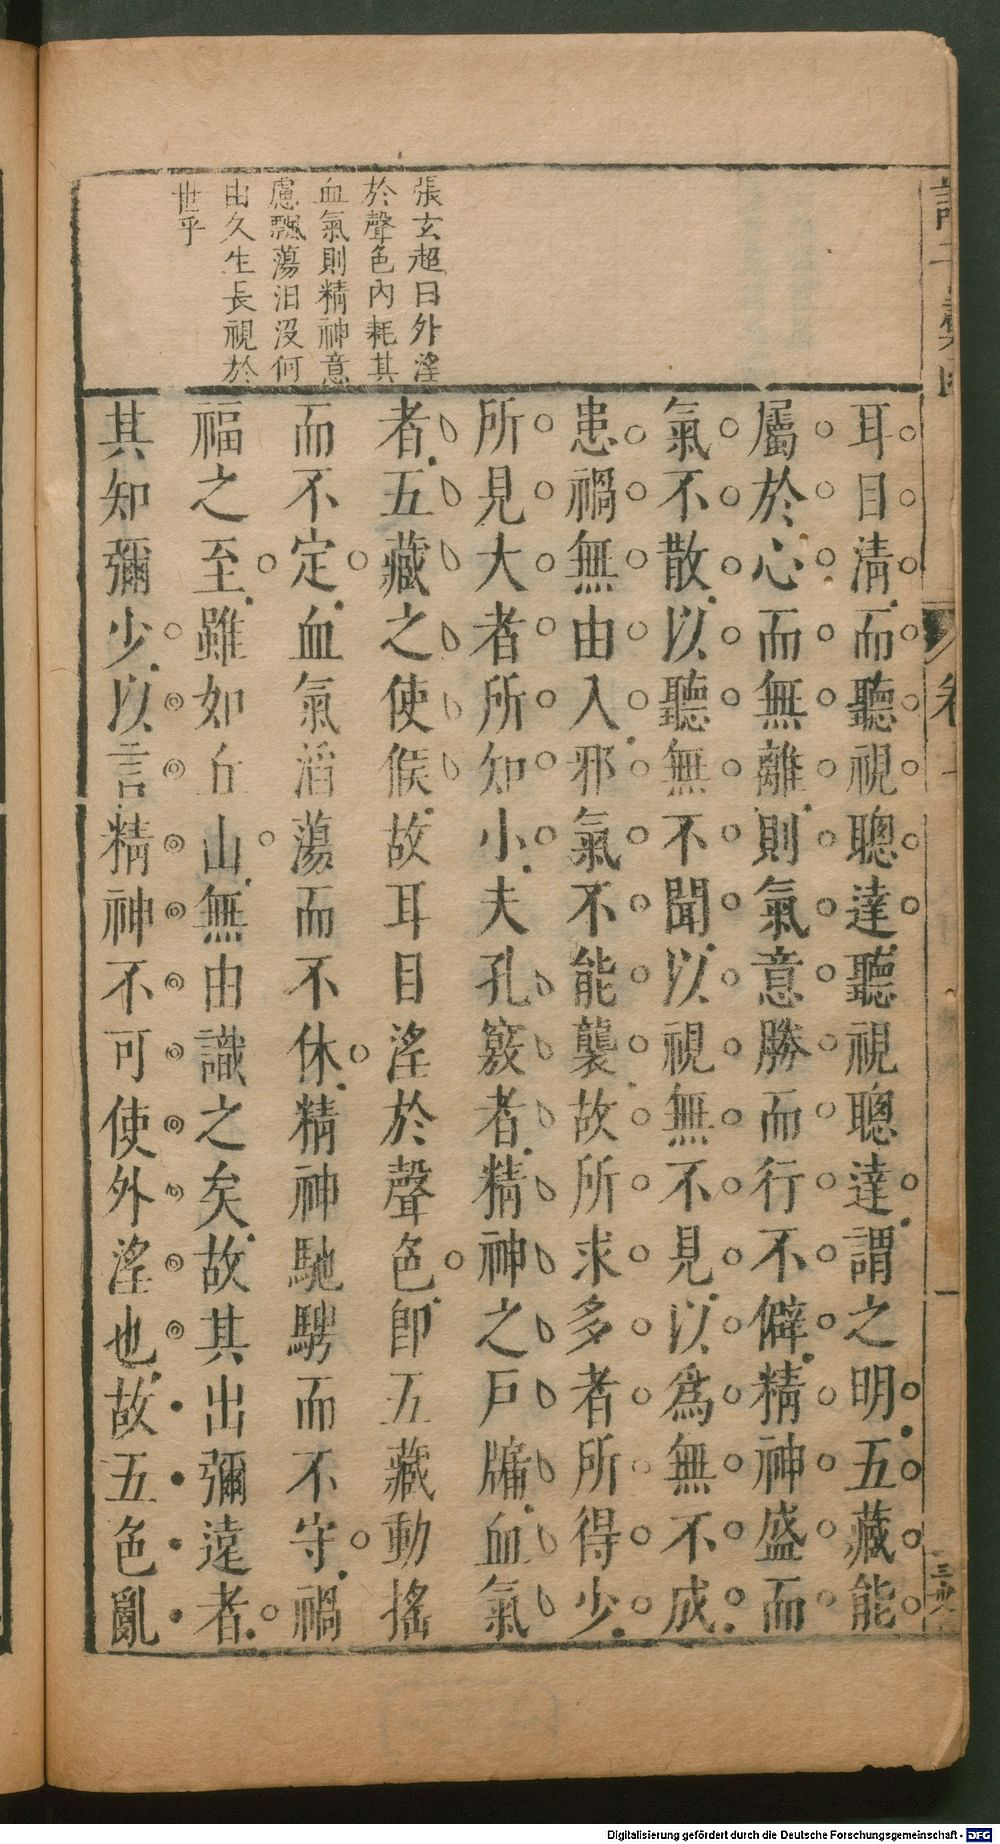 張玄超曰外淫
於聲色內耗其
血氣則精神意
慮飄蕩汩沒何
由久生長視於
世乎
耳目清而聽視聰達聽視聰達謂之明五藏能
屬於心而無離則氣意勝而行不僻精神盛而
氣不散以聽無不聞以視無不見以爲無不成
患禍無由入邪氣不能襲故所求多者所得少
所見大者所知小夫孔竅者精神之戶牖血氣
者五藏之使候故耳目淫於聲色卽五藏動搖
而不定血氣滔蕩而不休精神馳騁而不守禍
福之至雖如丘山無由識之矣故其出彌遠者
其知彌少以言精神不可使外淫也故五色亂
Digitalisierung gefördert durch die Deutsche Forschungsgemeinschaft - DFG